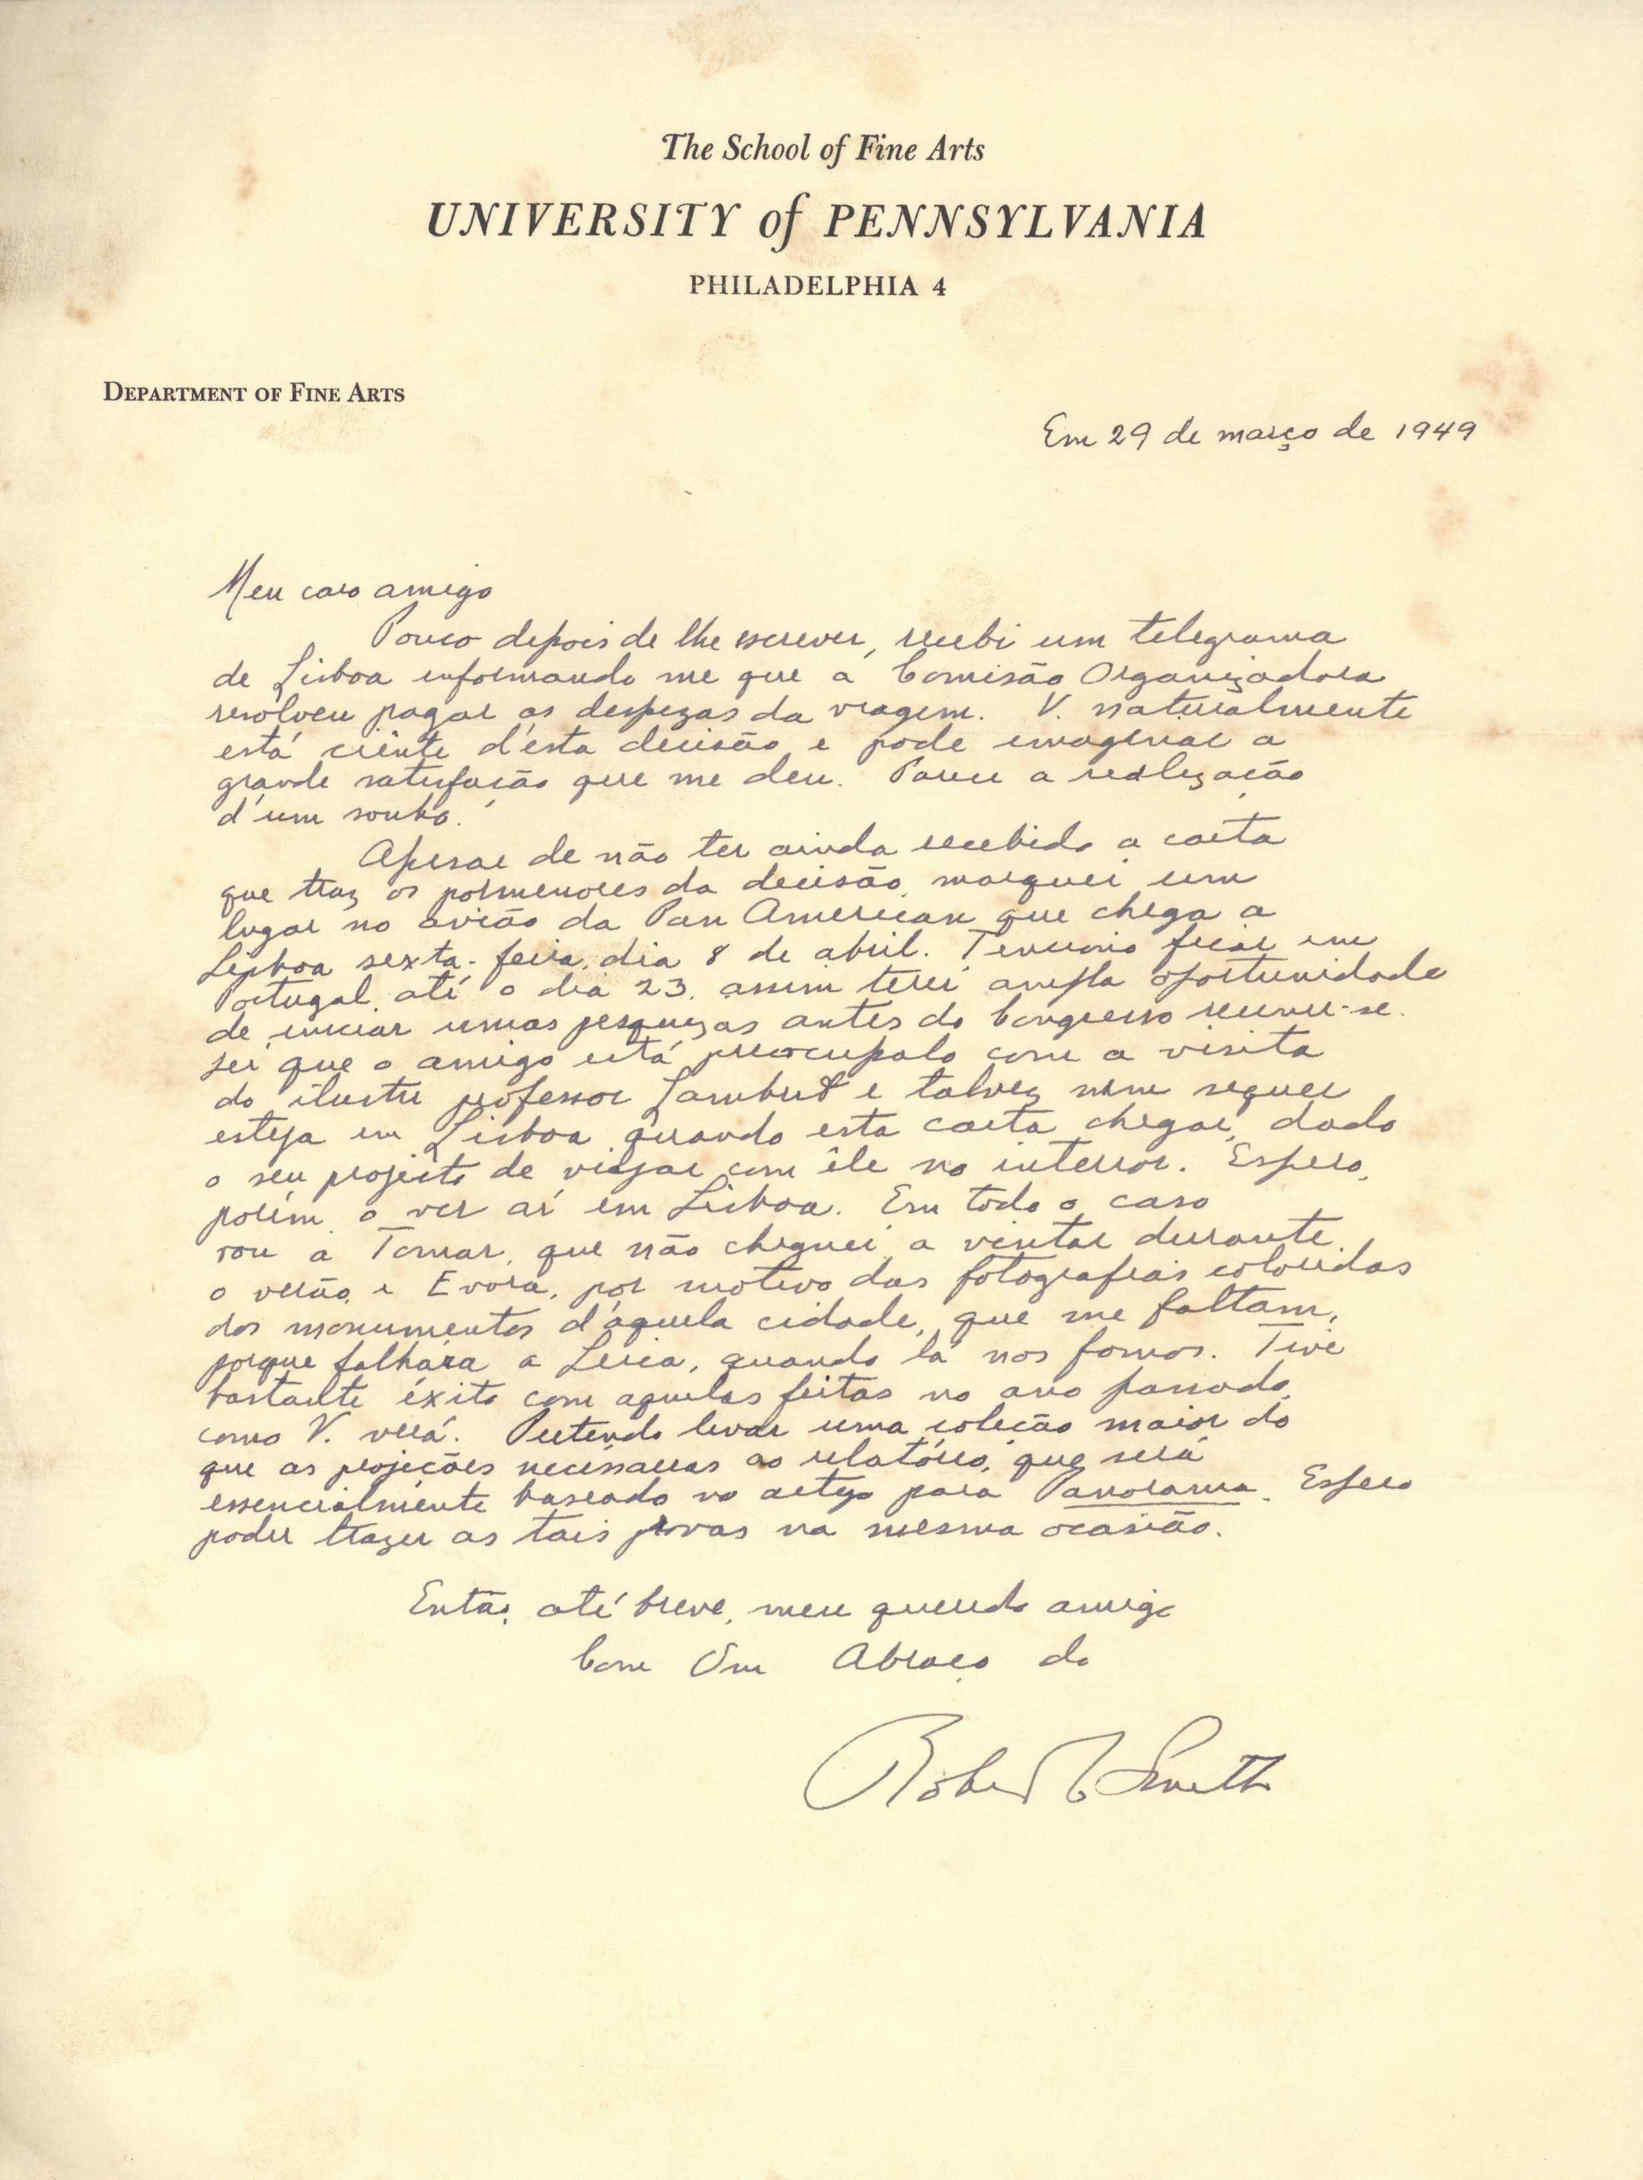 The School of Fine Arts
UNIVERSITY of PENNSYLVANIA
PHILADELPHIA 4
DEPARTMENT OF FINE ARTS
Em 29 de março de 1949
Meu caro amigo
Pouco depois de lhe escrever, recebi um telegrama
de Lisboa informando me que a Comisão Organizadora
resolveu pagar as despezas da viagem. V. naturalmente
está ciênte d'esta decisão e pode imaginar a
grande satisfação que me deu. Parece a realização
d'um sonho.
Apesar de não ter ainda recebido a carta
que traz os pormenores da decisão, marquei um
lugar no avião da Pan American que chega a
Lisboa sexta-feira, dia 8 de abril. Tenciono ficar em
Portugal até o dia 23. assim terei ampla oportunidade
de iniciar umas pesquizas antes do Congresso reunir-se.
Sei que o amigo está preocupado com a visita
do ilustre professor Lambert e talvez nem sequer
esteja em Lisboa quando esta carta chegar, dado
o seu projecto de viajar com êle no interior. Espero,
porém, o ver aí em Lisboa. Em todo o caso
vou a Tomar, que não cheguei a visitar durante
o verão, e Evora, por motivo das fotografias coloridas
dos monumentos d'aquela cidade, que me faltam,
porque falhára a Leica, quando lá nos fomos. Tive
bastante éxito com aquelas feitas no ano passado,
como V. verá. Pretendo levar uma coleção maior do
que as projecões necessarias ao relatório, que será
essencialmente baseado no artigo para Panorama. Espero
poder trazer as tais provas na mesma ocasião.
Então, até breve, meu querido amigo
Com Um Abraço do
Robert C. Smith